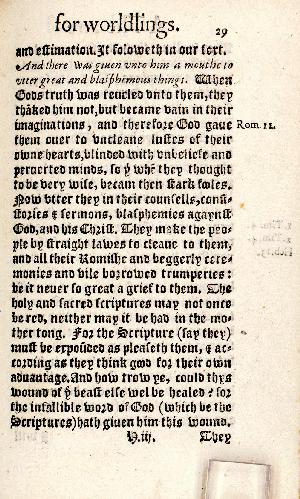 for worldlings. 29
and estimation. It foloweth in our text.
And there was giuen vnto him a mouthe to
vtter great and blasphemous things. When
Gods truth was reueled vnto them, they
thāked him not, but became vain in their
imaginations, and therefore God gaue
Rom. 11.
them ouer to vncleane lustes of their
owne hearts, blinded with vnbeliefe and
peruerted minds, so ẏ whē they thought
to be very wise, becam then stark fooles.
Now vtter they in their counsells, consi-
stories & sermons, blasphemies agaynst
God, and his Christ. They make the peo-
ple by straight lawes to cleaue to them,
and all their Romishe and beggerly cere-
monies and vile borrowed trumperies:
be it neuer so great a grief to them. The
holy and sacred scriptures may not once
be red, neither may it be had in the mo-
ther tong. For the Scripture (say they)
must be expoūded as pleaseth them, & ac-
cording as they think good for their own
aduantage. And how trow ye, could thys
wound of ẏ beast else wel be healed? for
the infallible word of God (which be the
Scriptures) hath giuen him this wound.
They